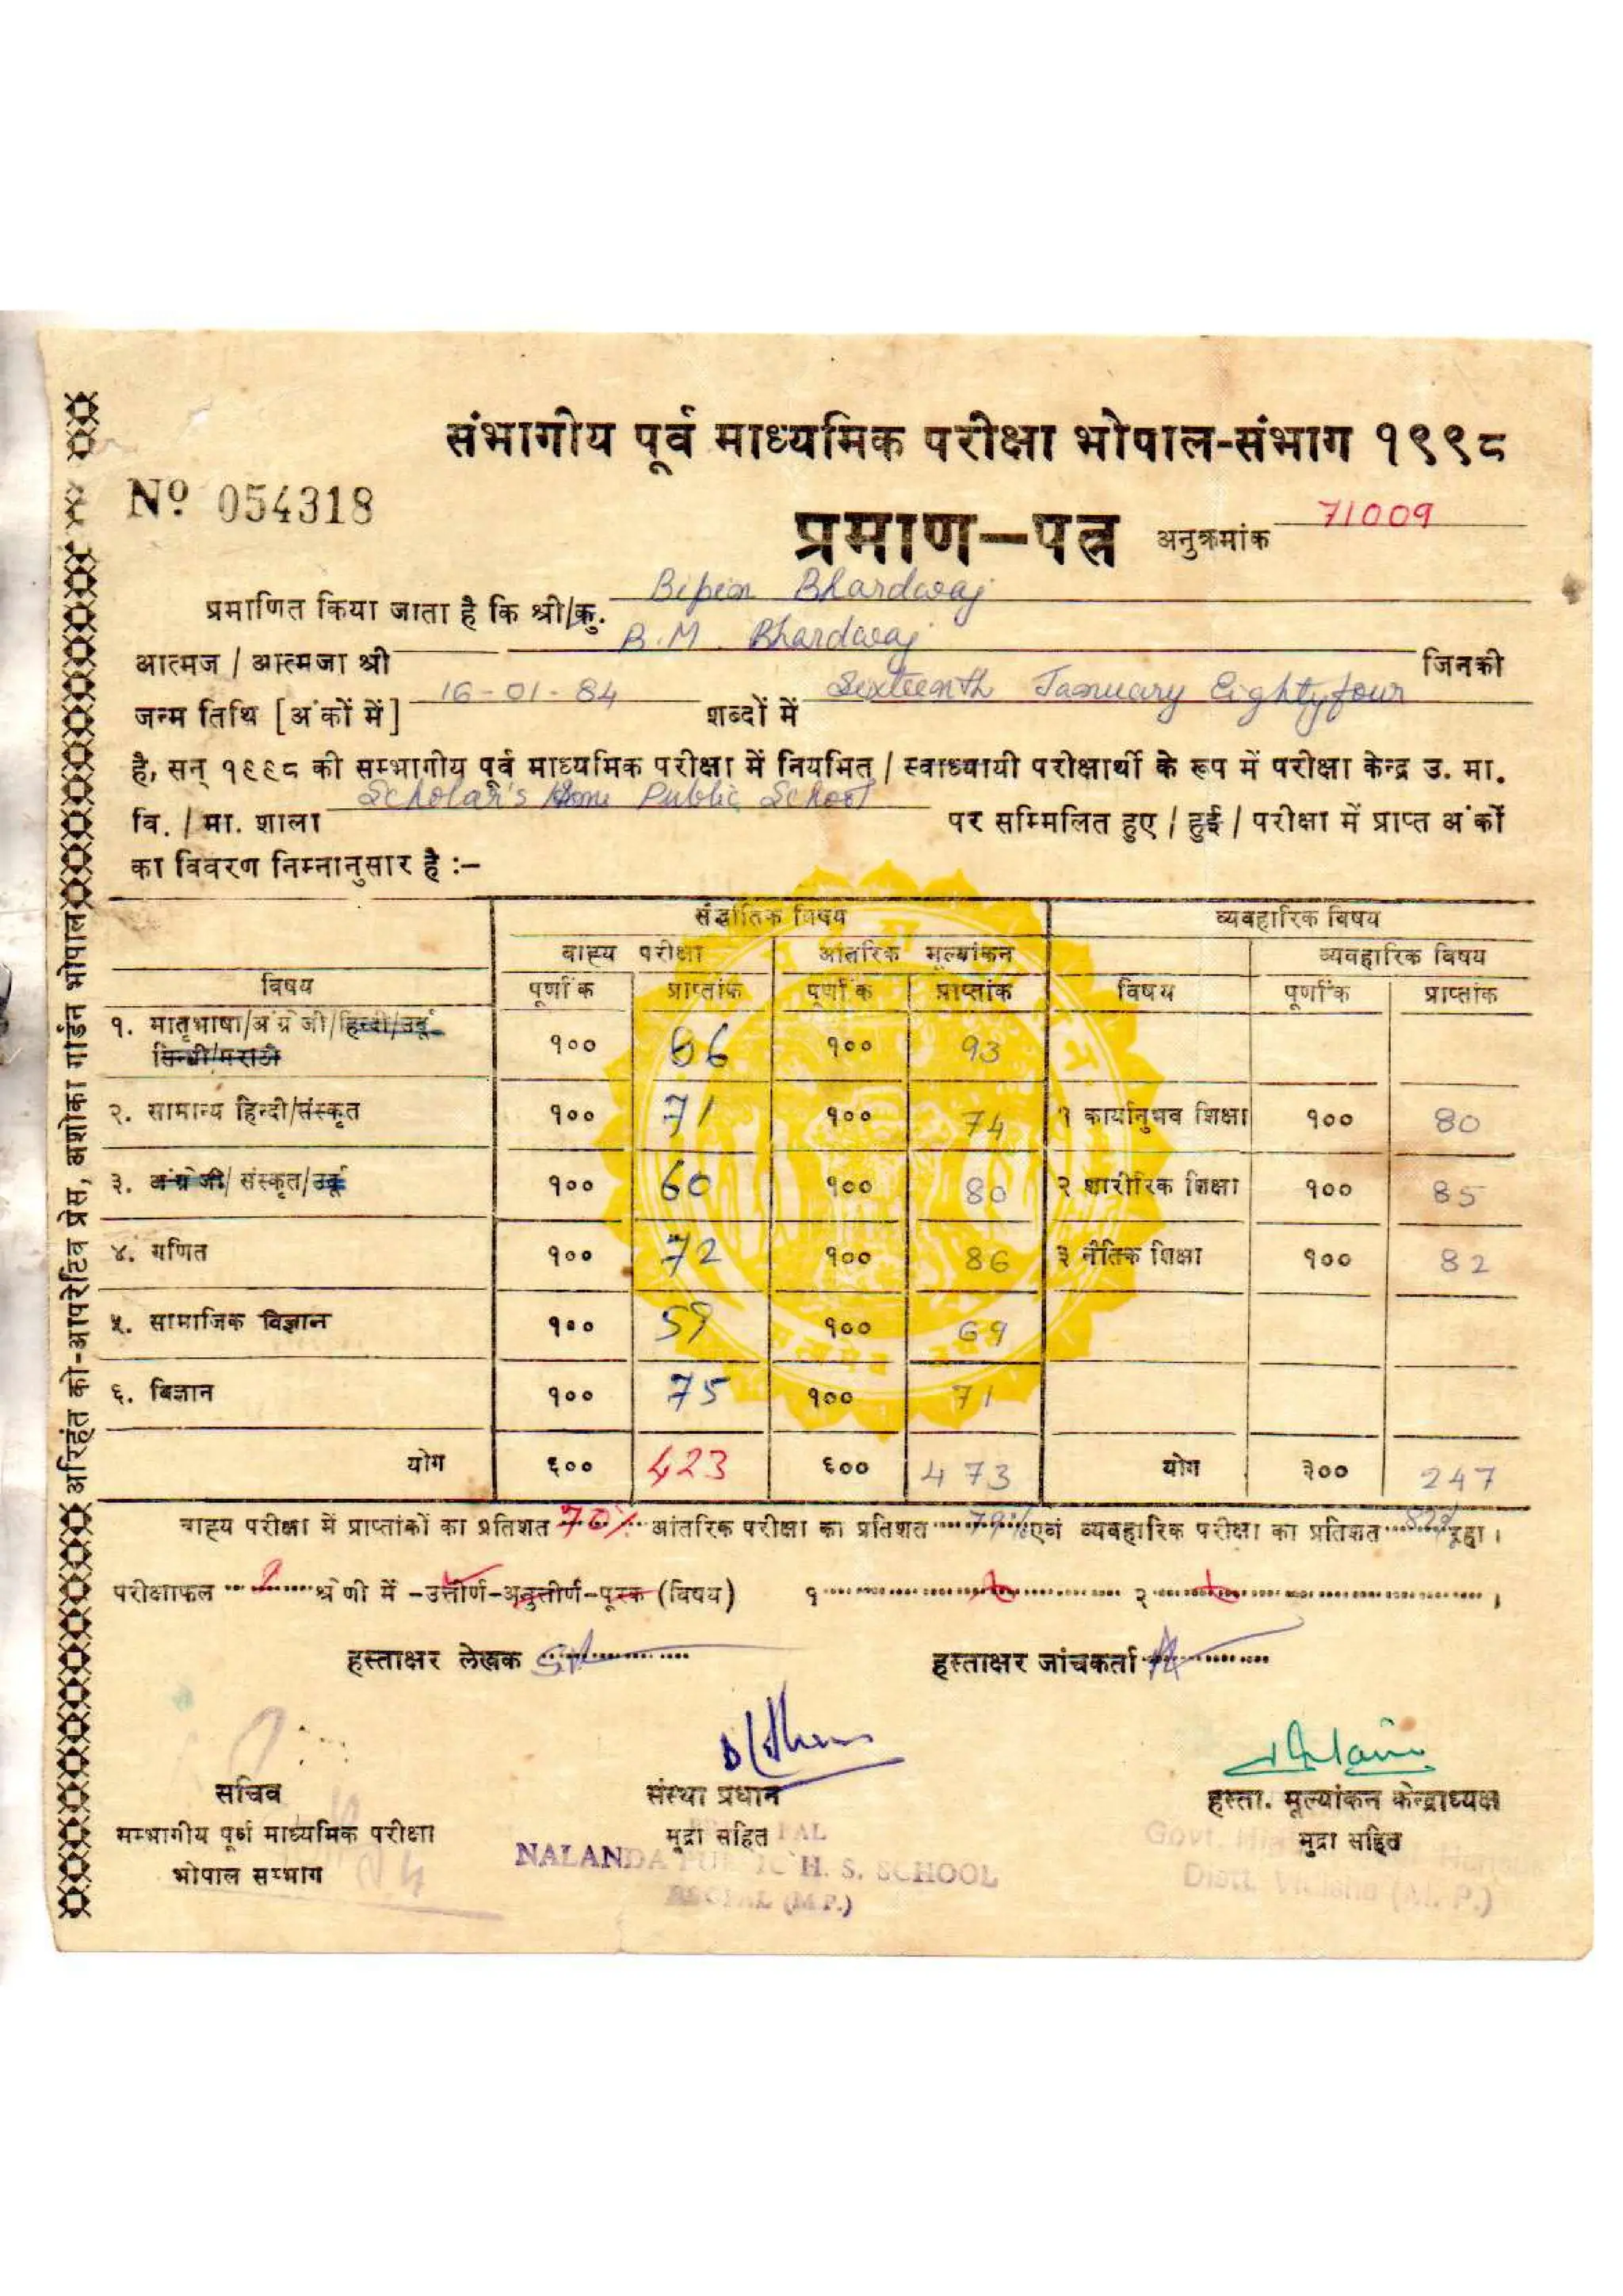 संभागीय पूर्व माध्यमिक परीक्षा भोपाल-संभाग १९९८
Nº 054318
प्रमाण-पत्र अनुक्रमांक 71009
प्रमाणित किया जाता है कि श्री/कु. Bipin Bhardwaj
आत्मज / आत्मजा श्री B.M. Bhardwaj जिनकी
जन्म तिथि [अंकों में] 16-01-84 शब्दों में Sixteenth January Eightyfour
है, सन् १९९८ की सम्भागीय पूर्व माध्यमिक परीक्षा में नियमित / स्वाध्यायी परीक्षार्थी के रूप में परीक्षा केन्द्र उ. मा.
वि. / मा. शाला Scholar's Home Public School पर सम्मिलित हुए / हुई / परीक्षा में प्राप्त अंकों
का विवरण निम्नानुसार है :–
सैद्धांतिक विषय व्यवहारिक विषय
वाह्य परीक्षा आंतरिक मूल्यांकन व्यवहारिक विषय
विषय पूर्णांक प्राप्तांक पूर्णांक प्राप्तांक विषय पूर्णांक प्राप्तांक
१. मातृभाषा/अंग्रेजी/हिन्दी/उर्दू १०० 86 १०० 93
सिन्धी/मराठी
२. सामान्य हिन्दी/संस्कृत १०० 71 १०० 74 १ कार्यानुभव शिक्षा १०० 80
३. अंग्रेजी/संस्कृत/उर्दू १०० 60 १०० 80 २ शारीरिक शिक्षा १०० 85
४. गणित १०० 72 १०० 86 ३ नैतिक शिक्षा १०० 82
५. सामाजिक विज्ञान १०० 59 १०० 69
६. विज्ञान १०० 75 १०० 71
योग ६०० 423 ६०० 473 योग ३०० 247
वाह्य परीक्षा में प्राप्तांकों का प्रतिशत 70% आंतरिक परीक्षा का प्रतिशत 79% एवं व्यवहारिक परीक्षा का प्रतिशत 82% रहा ।
परीक्षाफल श्रेणी में -उत्तीर्ण-अनुत्तीर्ण-पूरक (विषय) १ २ ।
हस्ताक्षर लेखक हस्ताक्षर जांचकर्ता
सचिव संस्था प्रधान हस्ता. मूल्यांकन केन्द्राध्यक्ष
सम्भागीय पूर्व माध्यमिक परीक्षा मुद्रा सहित मुद्रा सहित
भोपाल सम्भाग
NALANDA PUBLIC H. S. SCHOOL
BHOPAL (M.P.)
Govt.
Distt. Vidisha (M. P.)
अरिहंत को-आपरेटिव प्रेस, अशोका गार्डन भोपाल